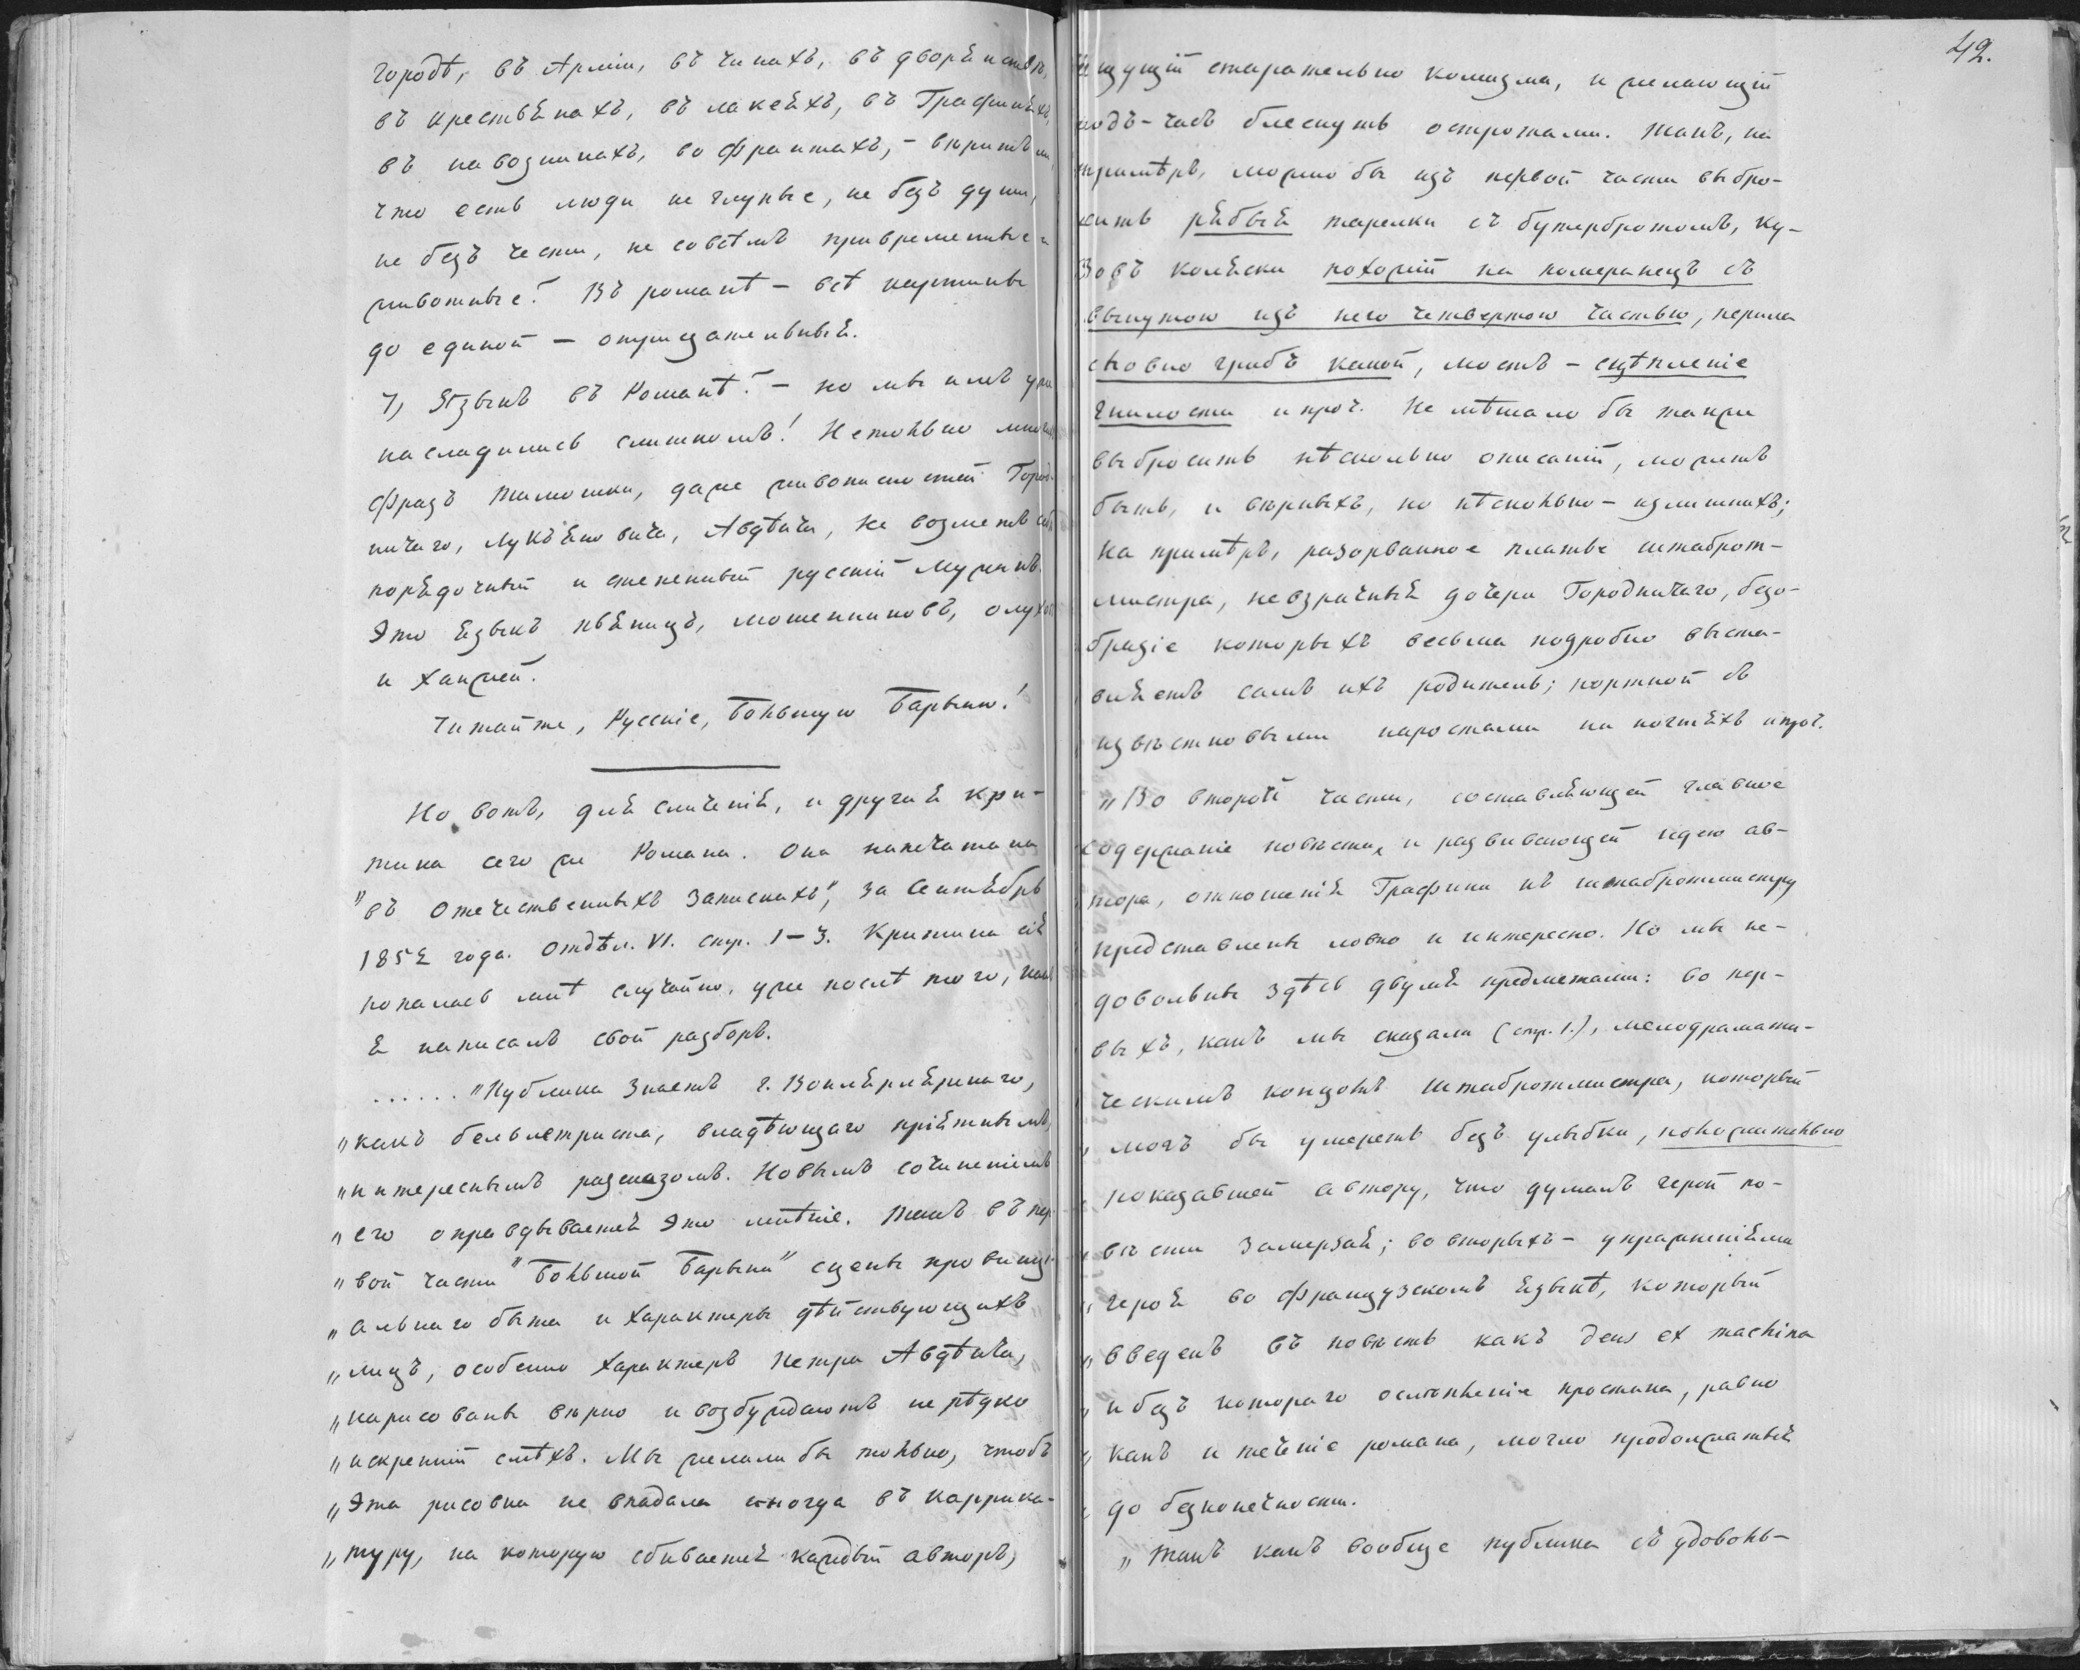 городѣ, въ Арміи, въ чинахъ, въ дворянствѣ,
въ крестьянахъ, въ лакеяхъ, въ Графиняхъ,
въ навозникахъ, во франтахъ, – вѣритъ ли,
что есть люди не глупые, не безъ души,
не безъ чести, не совсѣмъ привременные
животные? Въ романѣ – всѣ картины
до единой – отрицательныя.
7, Языкъ въ Романѣ? – но мы имъ уже
насладились слишкомъ! Не только многихъ
фразъ Тимошки, даже живописностей Город-
ничаго, Лукьяновича, Авдѣича, не возметъ себѣ
порядочный и степенный русскій мужикъ.
Это языкъ пьяницъ, мошенниковъ, олуховъ
и ханжей.
Читайте, Русскіе, Большую Барыню!
Но вотъ, для сличенія, и другая кри-
тика сего же Романа. Она напечатана
"въ Отечественныхъ Запискахъ", за Сентябрь
1852 года. Отдѣл. VI. стр. 1–3. Критика сія
попалась мнѣ случайно, уже послѣ того, какъ
я написалъ свой разборъ.
...... "Публика знаетъ г. Вонлярлярскаго,
"какъ беллетриста, владѣющаго пріятнымъ,
"интереснымъ разсказомъ. Новымъ сочиненіемъ
"его оправдывается это мнѣніе. Такъ въ пер-
"вой части "Большой Барыни" сцены провинці-
"альнаго быта и характеры дѣйствующихъ
"лицъ, особенно характеръ Петра Авдѣича,
"нарисованы вѣрно и возбуждаютъ не рѣдко
"искренній смѣхъ. Мы желали бы только, чтобъ
"эта рисовка не впадала иногда въ каррика-
"туру, на которую сбивается каждый авторъ,
42.
ищущій старательно комизма, и желающій
подъ-часъ блеснуть остротами. Такъ, на
примѣръ, можно бы изъ первой части выбро-
сить рябыя тарелки съ бутербротомъ, ку-
зовъ коляски похожій на померанецъ съ
вынутою изъ него четвертою частью, перила
словно грибъ какой, мостъ – сцѣпленіе
гнилости и проч. Не мѣшало бы также
выбросить нѣсколько описаній, можетъ
быть, и вѣрныхъ, но нѣсколько – излишнихъ;
на примѣръ, разорванное платье штаброт-
мистра, невзрачныя дочери Городничаго, безо-
бразіе которыхъ весьма подробно выста-
вляетъ самъ ихъ родитель; портной съ
известковыми наростами на ногтяхъ и проч.
"Во второй части, составляющей главное
содержаніе повѣсти, и развивающей идею ав-
тора, отношенія Графини къ штабротмистру
представлены ловко и интересно. Но мы не-
довольны здѣсь двумя предметами: во пер-
выхъ, какъ мы сказали (стр. 1.), мелодрамати-
ческимъ концомъ штабротмистра, который
"могъ бы умереть безъ улыбки, положительно
показавшей автору, что думалъ герой по-
вѣсти замерзая; во вторыхъ – упражненіями
"героя во французскомъ языкѣ, который
"введенъ въ повѣсть какъ deus ex machina
"и безъ котораго осмѣяніе простака, равно
"какъ и теченіе романа, могло продолжаться
до безконечности.
"Такъ какъ вообще публика съ удоволь-